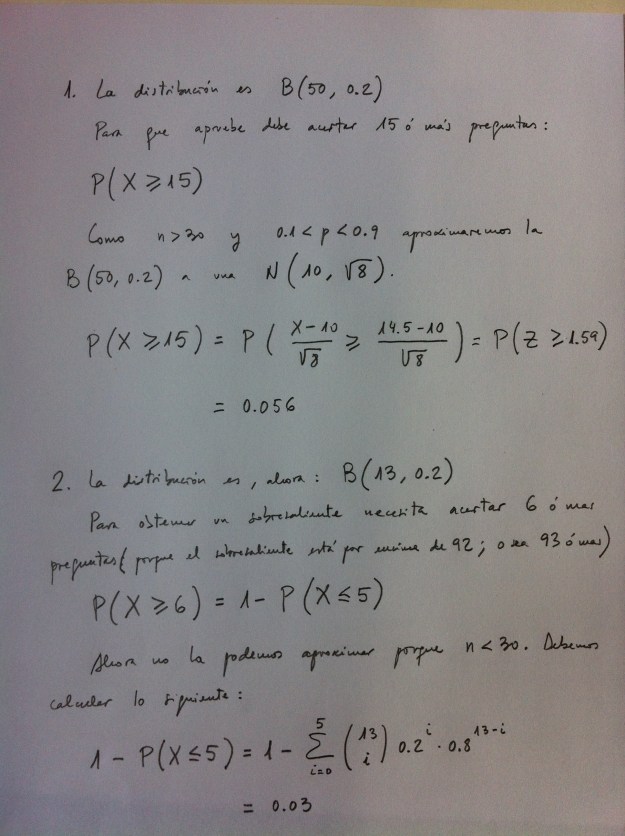 1. La distribución es B(50, 0.2)
Para que apruebe debe acertar 15 ó más preguntas:
P(X ⩾ 15)
Como n > 30 y 0.1 < p < 0.9 aproximaremos la
B(50, 0.2) a una N(10, √8).
P(X ⩾ 15) = P( (X - 10)/√8 ⩾ (14.5 - 10)/√8 ) = P(Z ⩾ 1.59)
= 0.056
2. La distribución es, ahora: B(13, 0.2)
Para obtener un sobresaliente necesita acertar 6 ó mas
preguntas (porque el sobresaliente está por encima de 92; o sea 93 ó mas)
P(X ⩾ 6) = 1 - P(X ≤ 5)
Ahora no la podemos aproximar porque n < 30. Debemos
calcular lo siguiente:
1 - P(X ≤ 5) = 1 - ∑_{i=0}^{5} (13 i) 0.2^i · 0.8^{13-i}
= 0.03